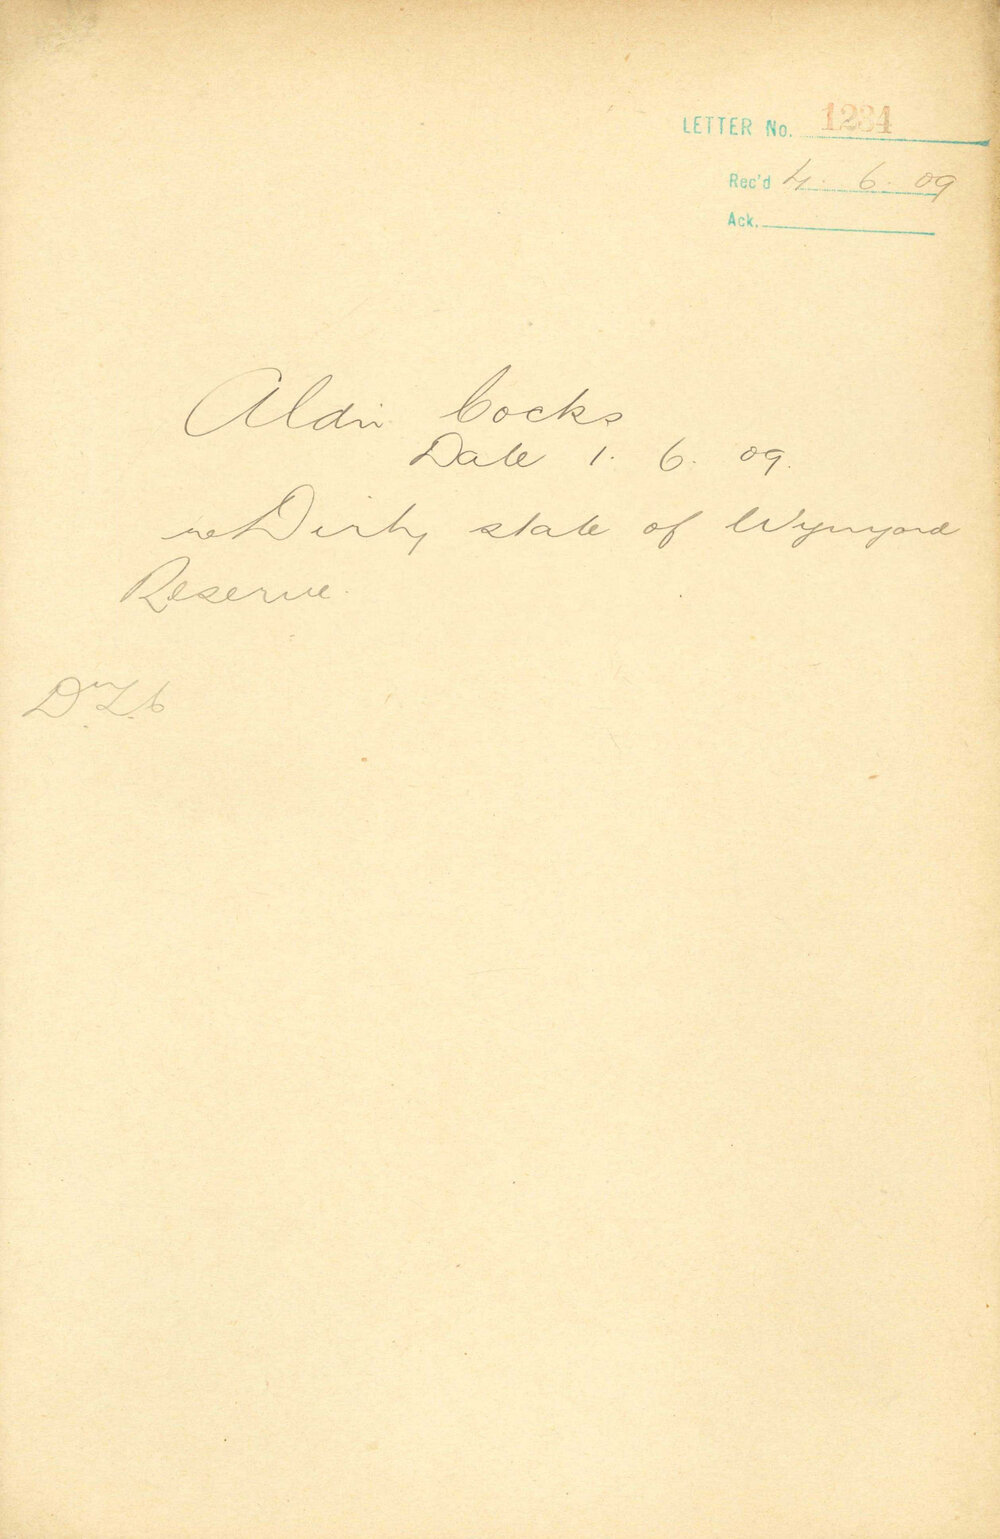 LETTER No. 1234
Rec'd 4. 6. 09
Ack.
Aldn Cocks
Date 1. 6. 09.
re Dirty state of Wynyard
Reserve.